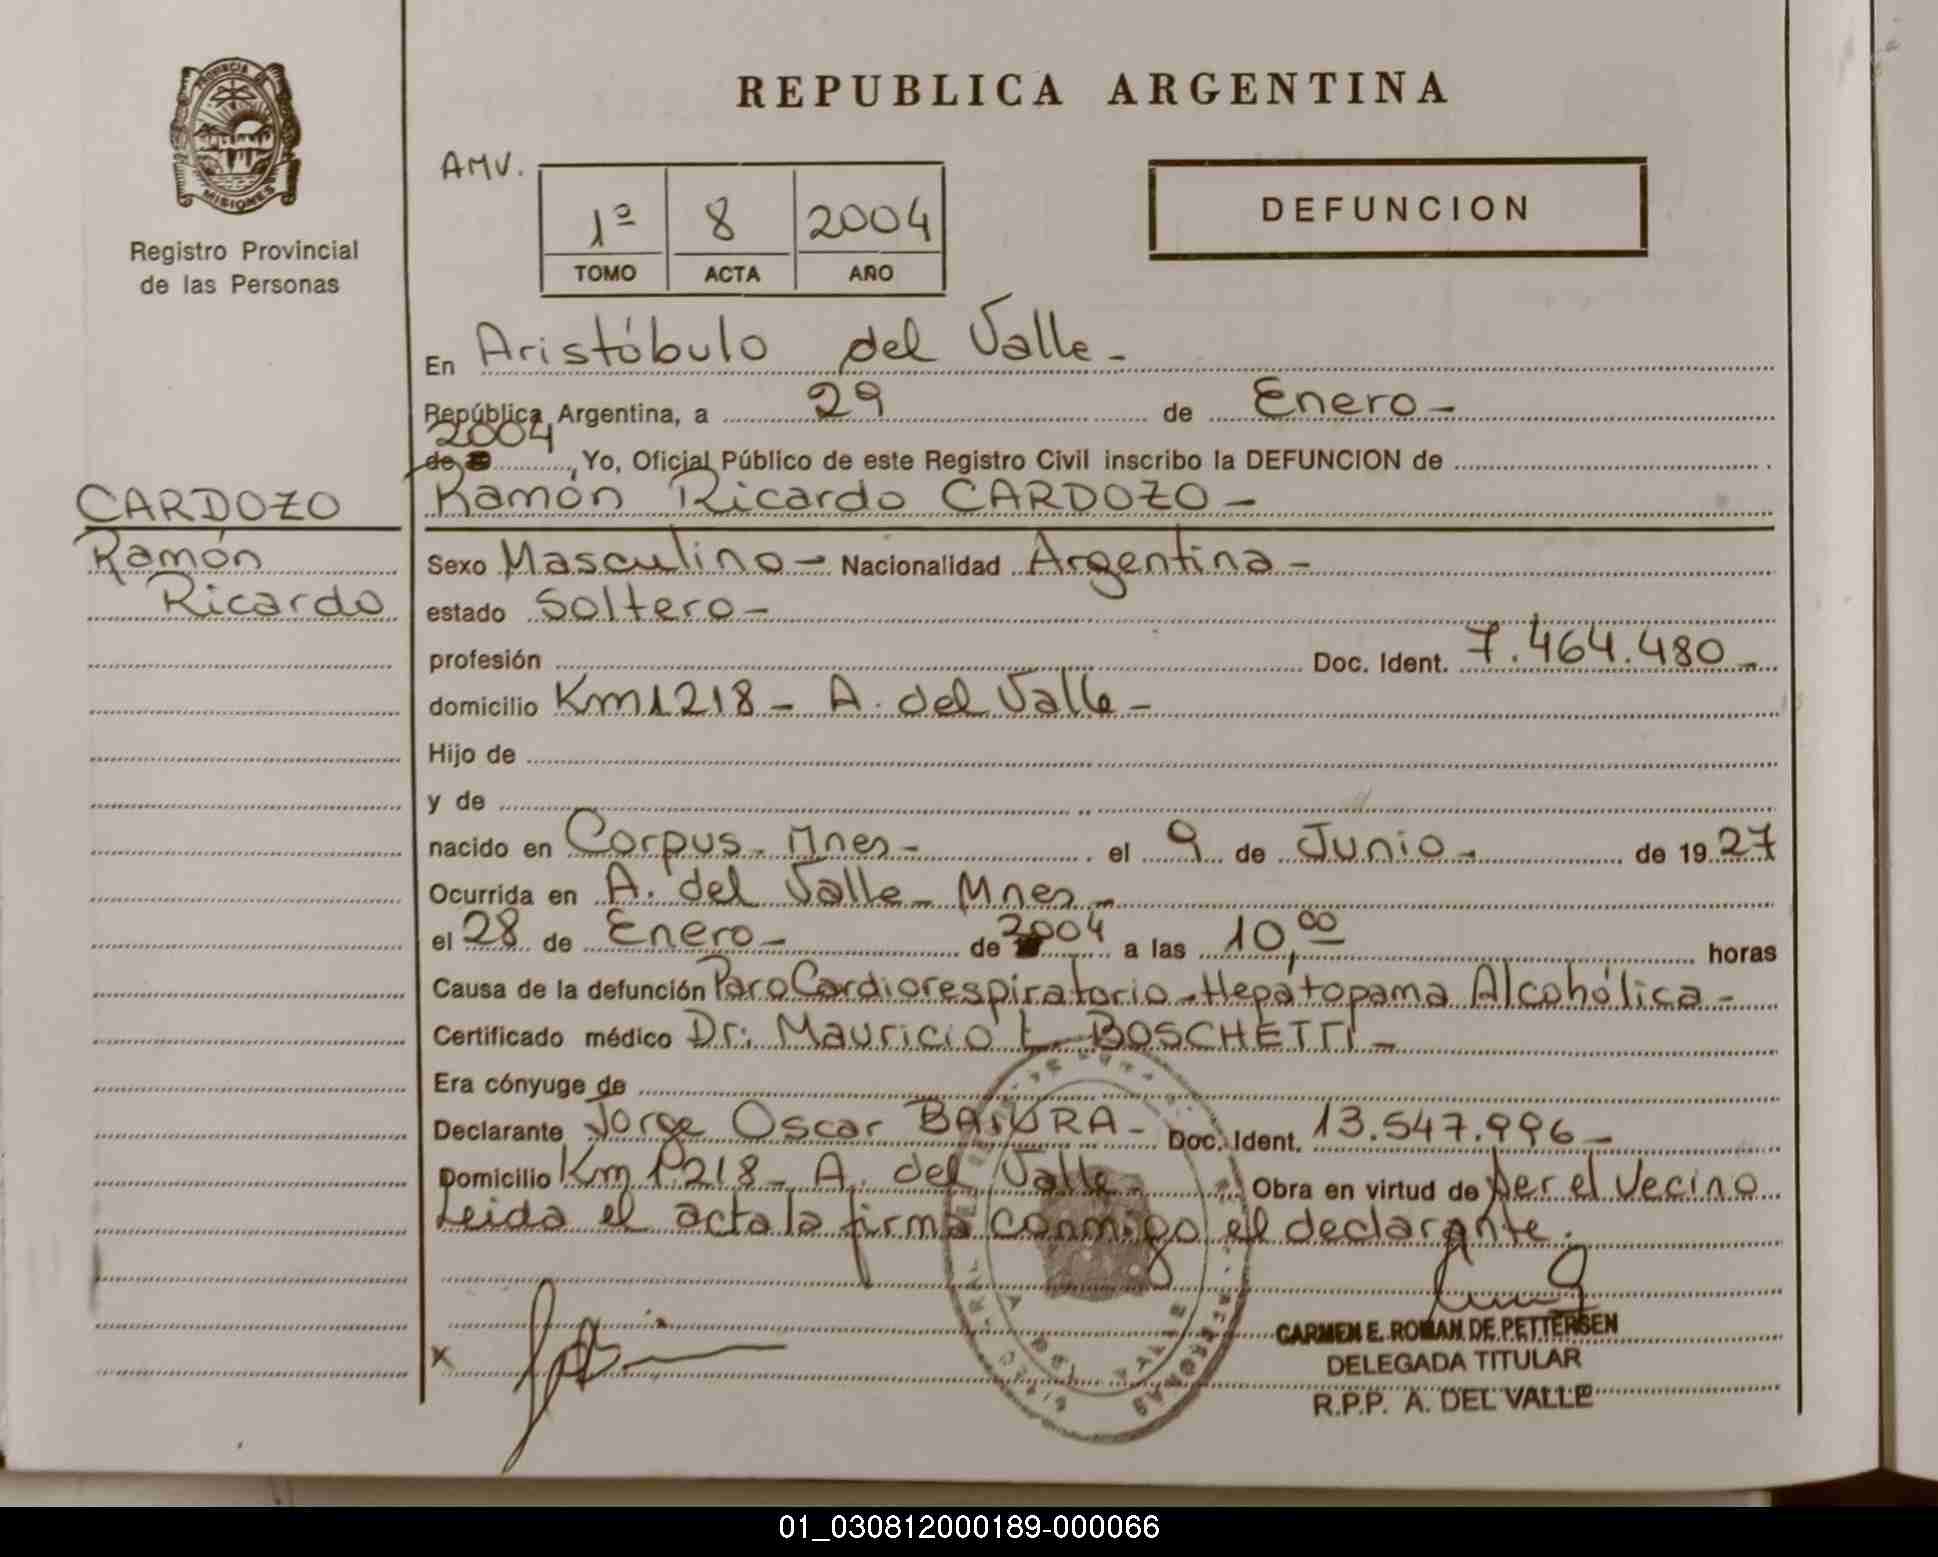 PROVINCIA DE
MISIONES
Registro Provincial
de las Personas
REPUBLICA ARGENTINA
AMV.
1º 8 2004
TOMO ACTA AÑO
DEFUNCION
En Aristóbulo del Valle -
República Argentina, a 29 de Enero -
2004
de , Yo, Oficial Público de este Registro Civil inscribo la DEFUNCION de
Ramón Ricardo CARDOZO -
CARDOZO
Ramón
Ricardo
Sexo Masculino - Nacionalidad Argentina -
estado Soltero -
profesión Doc. Ident. 7.464.480 -
domicilio Km 1218 - A. del Valle -
Hijo de
y de
nacido en Corpus - Mnes - el 9 de Junio - de 1927
Ocurrida en A. del Valle - Mnes -
el 28 de Enero - de 2004 a las 10,00 horas
Causa de la defunción Paro Cardiorespiratorio - Hepátopama Alcohólica -
Certificado médico Dr: Mauricio L. BOSCHETTI -
Era cónyuge de
Declarante Jorge Oscar Doc. Ident. 13.547.996 -
Domicilio Km 1218 - A. del Valle - Obra en virtud de ser el vecino
Leida el acta la firma conmigo el declarante.
x
CARMEN E. ROMAN DE PETTERSEN
DELEGADA TITULAR
R.P.P. A. DEL VALLE
01_030812000189-000066